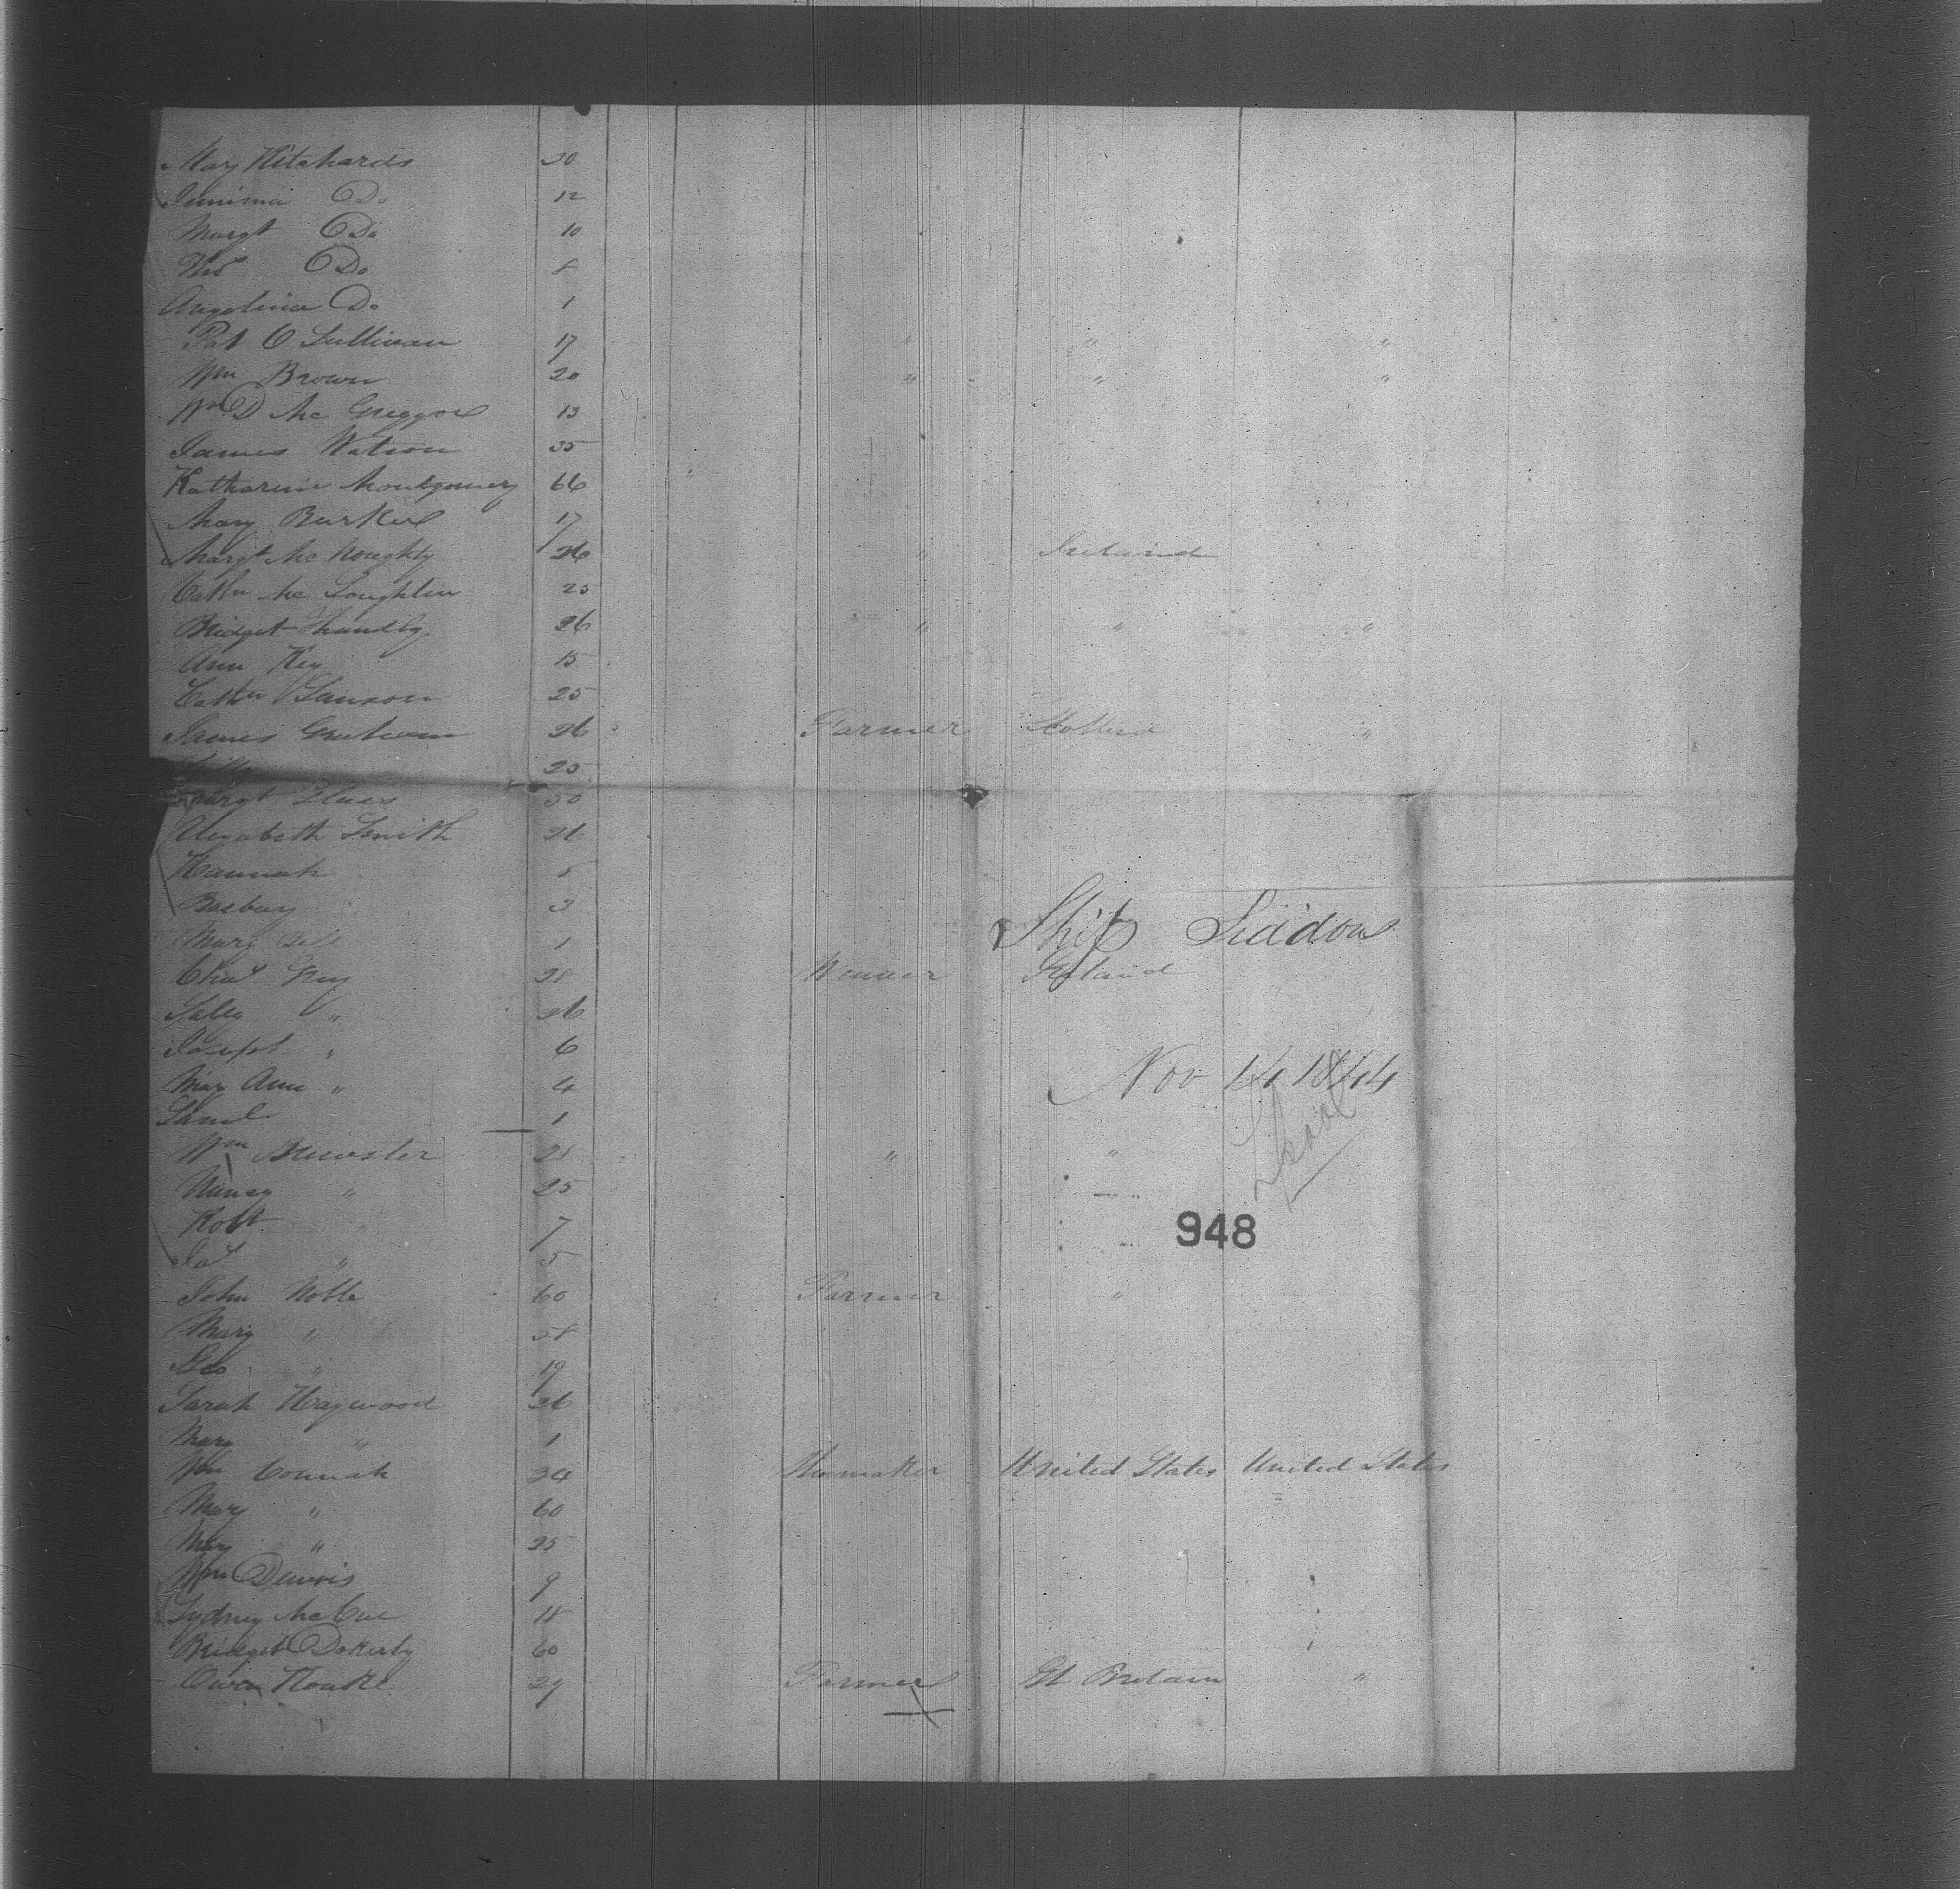 Mary Kitchards 30
Jemima Do 12
Margt Do 10
Thos Do 8
Angelina Do 1
Pat O Sullivan 17 " " "
Wm Brown 20 " " "
Wm D Mc Greggor 13
James Watson 35
Katharine Montgomery 66
Mary Burke 17
Margt Mc Noughty 26 " Ireland
Cathn Mc Loughlin 25
Bridget 26 " " "
Ann Key 15
Cathn 25
James Graham 26 Farmer Scotland "
25
Margt 30
Elizabeth Smith 26
Hannah 5
3
Mary 1
Ship Siddons
Chas Grey 28 Weaver Ireland
26
Joseph " 6
Mary Ann " 4
Nov 14 1844
Saml 1
Wm Brewster 28 " "
Nancy " 25
Robt " 7
948
Jas " 5
John Noble 60 Farmer "
Mary " 58
Geo " 19
Sarah Haywood 26
Mary " 1
Wm Connah 24 Shoemaker United States United States
Mary " 60
Mary " 25
Wm Dennis 9
Sydney Mc Cue 18
Bridget Dokerty 60
Owen Rourke 29 Farmer Gt Britain "